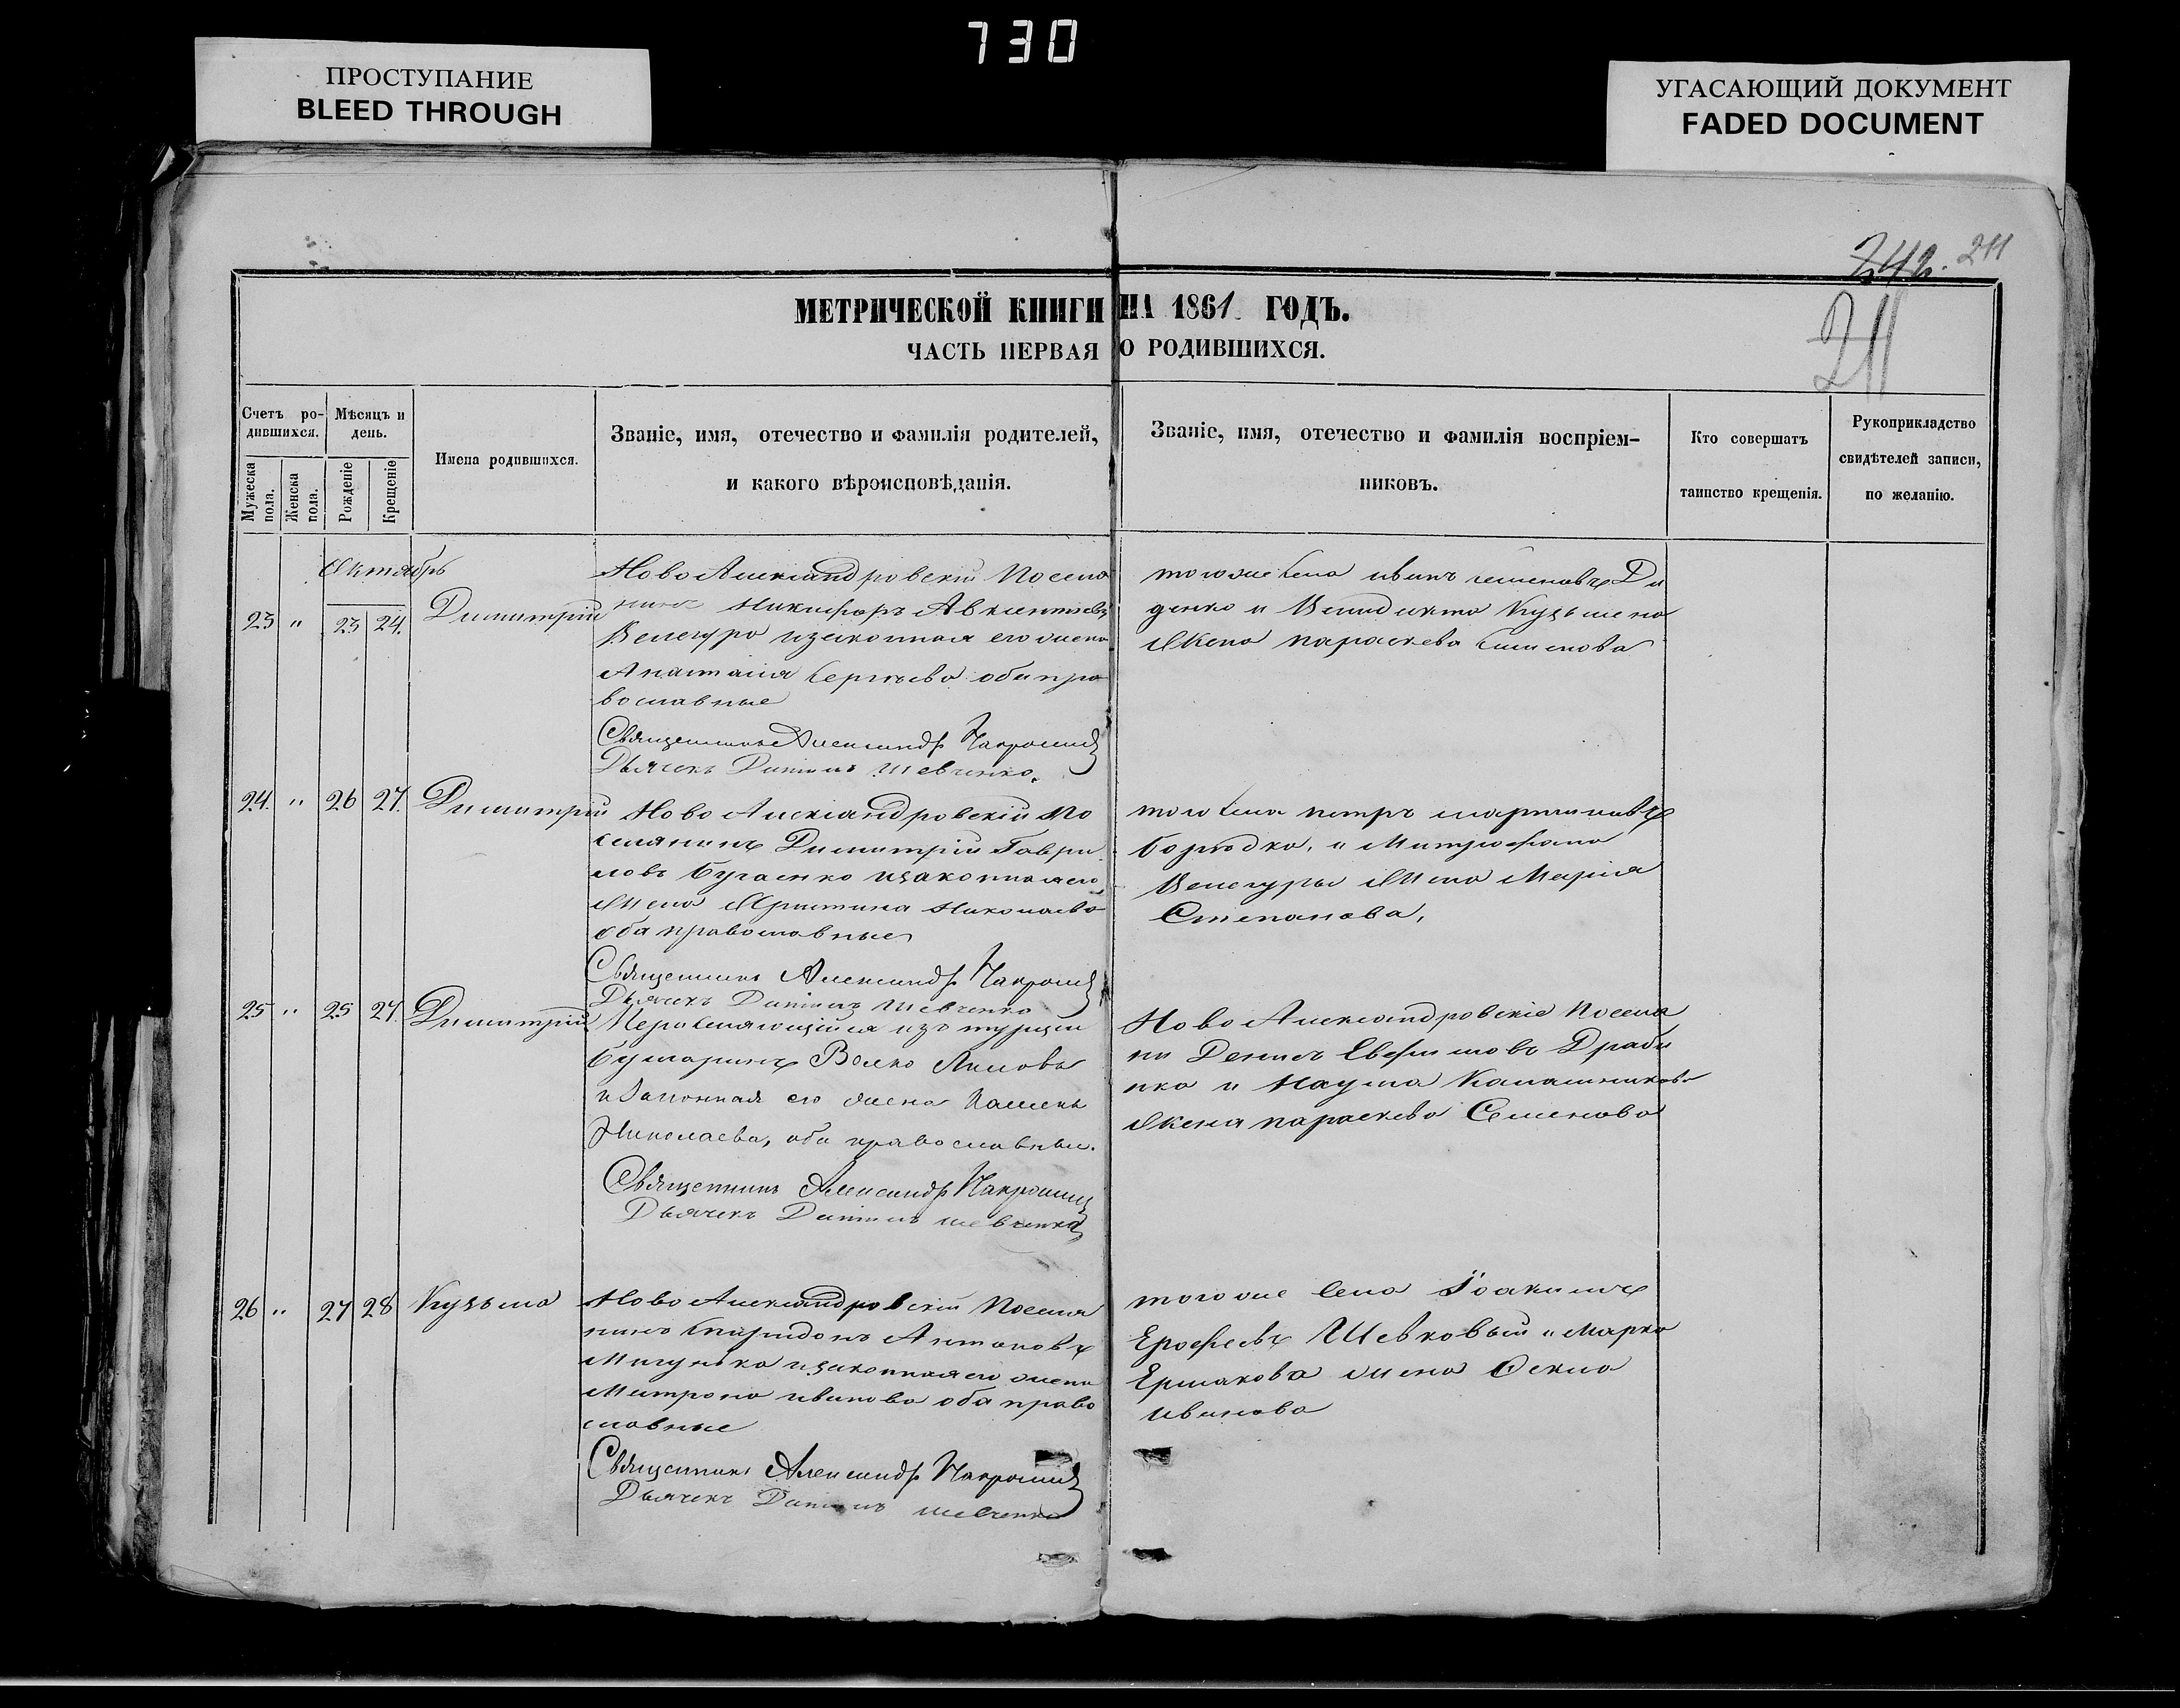 730
ПРОСТУПАНИЕ
BLEED THROUGH
УГАСАЮЩИЙ ДОКУМЕНТ
FADED DOCUMENT
242. 211
211
МЕТРИЧЕСКОЙ КНИГИ НА 1861 ГОДЪ.
ЧАСТЬ ПЕРВАЯ О РОДИВШИХСЯ.
Счетъ ро-
дившихся.
Мужеска пола.
Женска пола.
Мѣсяцъ и
день.
Рожденіе
Крещеніе
Имена родившихся.
Званіе, имя, отечество и фамилія родителей,
и какого вѣроисповѣданія.
Званіе, имя, отечество и фамилія воспріем-
никовъ.
Кто совершатъ
таинство крещенія.
Рукоприкладство
свидѣтелей записи,
по желанію.
Октябрь
23 " 23 24. Димитрій
Ново Александровскій поселя
нинъ Никифоръ
Велегура изаконная его жена
Анастасія Сергѣева оба пра
вославные
Священникъ Александръ
Дьячекъ Шевченко.
тогоже села иванъ семеновъ Ди
денко и Кузьмена
Жена параскева
24. " 26 27. Димитрій
Ново Александровскій по
селянинъ Димитрій Гаври
ловъ Бугаенко изаконная его
Жена Христина Николаева
оба православные
Священникъ Александръ
Дьячекъ Шевченко
того села петръ мартиновъ
и Митрофана
Велегуры Жена Марія
Степанова,
25 " 25 27. Димитрій
Переселяющійся изъ турціи
Булгаринъ Волко
и Законная его жена
Николаева, оба православные.
Священникъ Александръ
Дьячекъ Шевченко
Ново Александровскіе поселя
ни Денисъ Драби
нка и Наума
Жена параскева Семенова
26 " 27 28 Кузьма
Ново Александровскій поселя
нинъ Спиридонъ Антоновъ
изаконная его жена
Митрона иванова оба право
славные
Священникъ Александръ
Дьячекъ Шевченко
тогоже села Іоакимъ
Ерофеевъ Шевковый и Марка
Ермакова жена Фекла
иванова